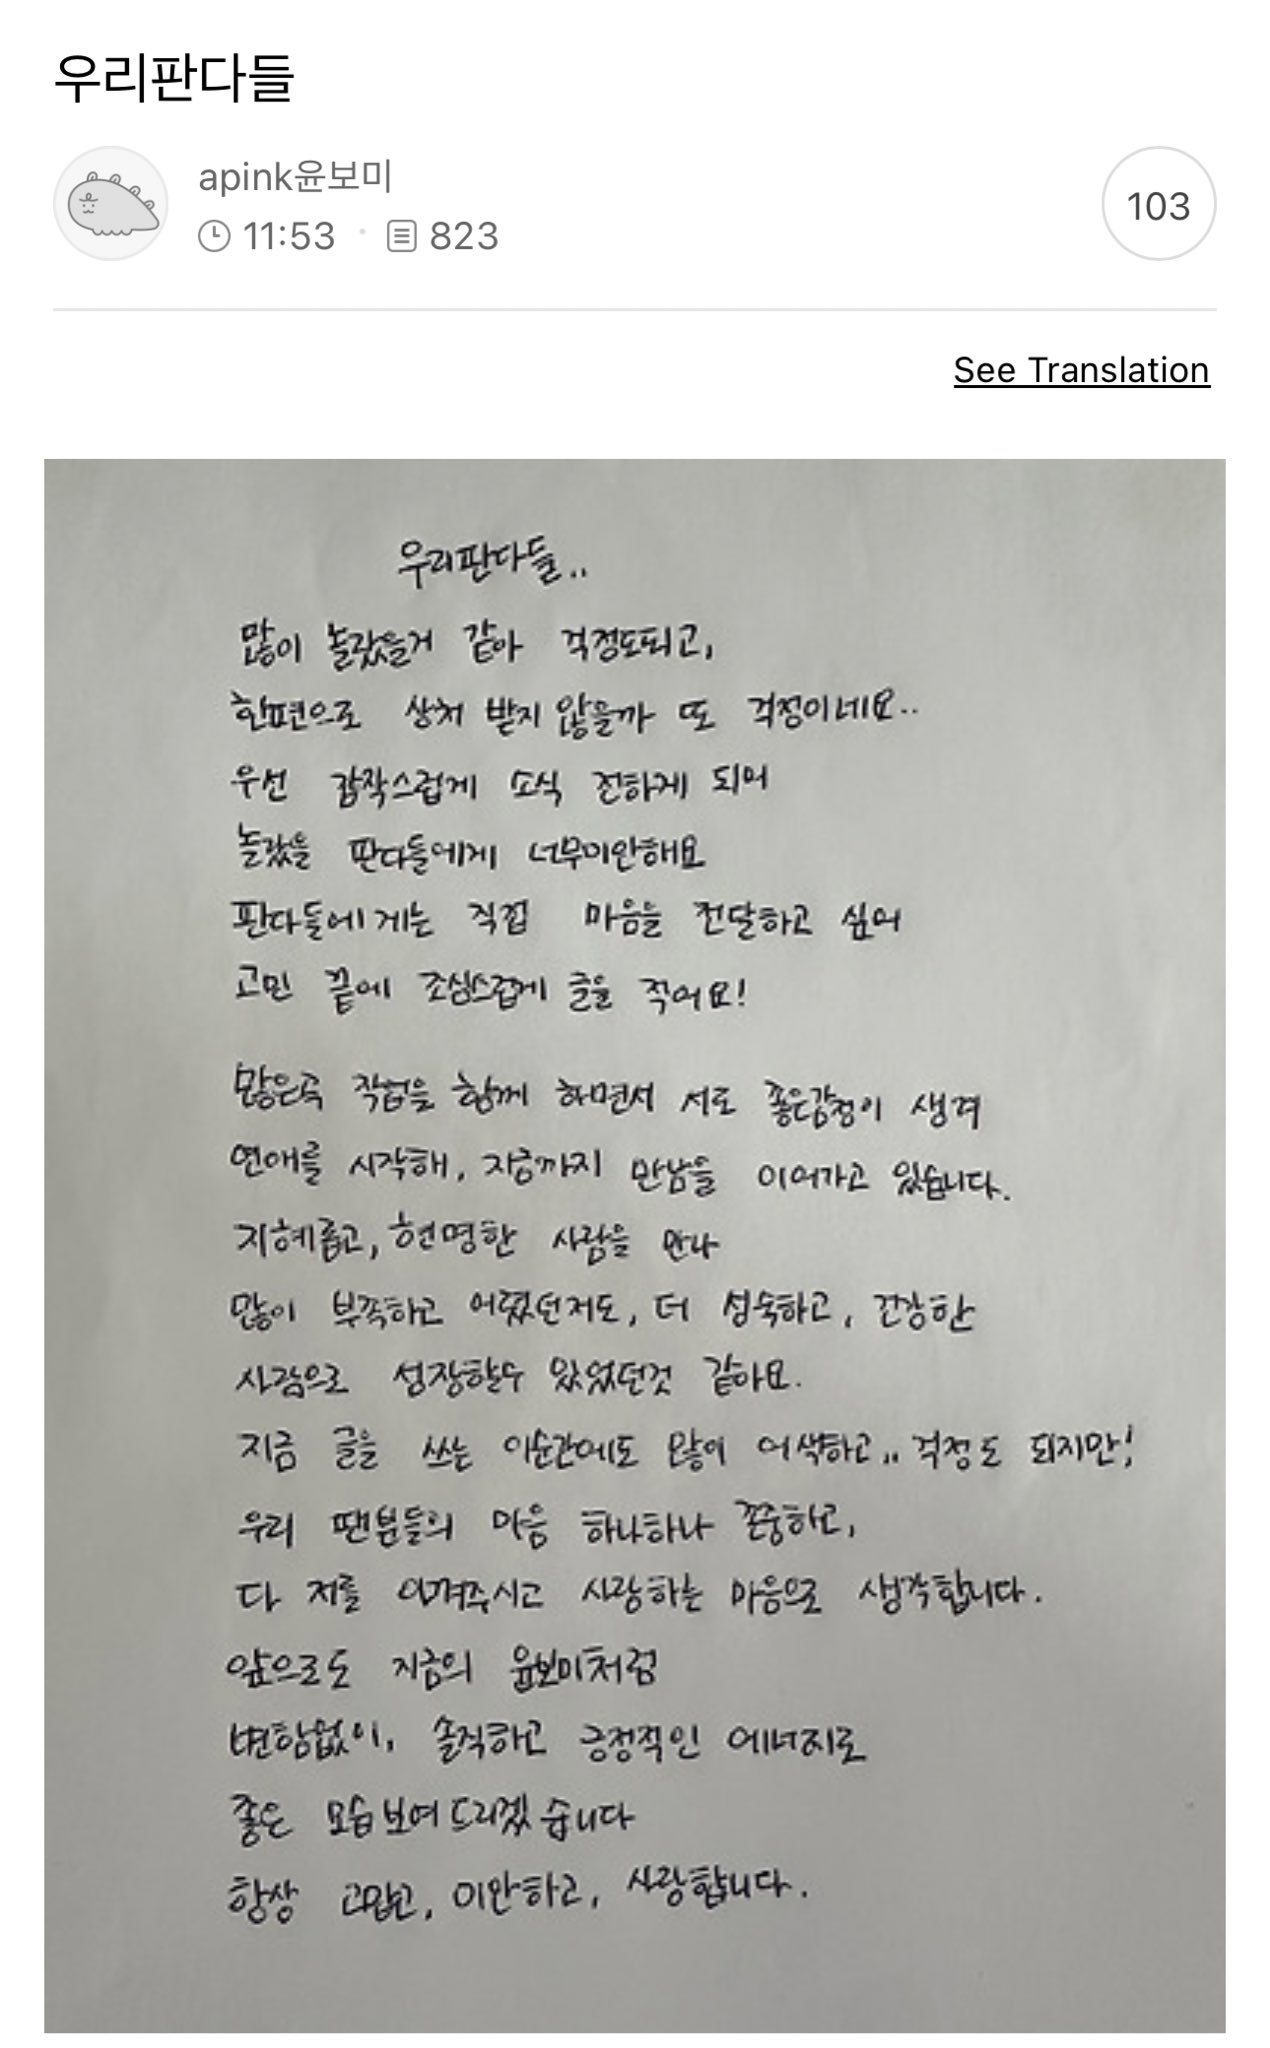 우리판다들
apink윤보미
11:53 · 823
103
See Translation
우리판다들..
많이 놀랐을거 같아 걱정도되고,
한편으로 상처 받지 않을까 또 걱정이네요..
우선 갑작스럽게 소식 전하게 되어
놀랐을 판다들에게 너무미안해요
판다들에게는 직접 마음을 전달하고 싶어
고민 끝에 조심스럽게 글을 적어요!
많은곡 작업을 함께 하면서 서로 좋은감정이 생겨
연애를 시작해, 지금까지 만남을 이어가고 있습니다.
지혜롭고, 현명한 사람을 만나
많이 부족하고 어렸던저도, 더 성숙하고, 건강한
사람으로 성장할수 있었던것 같아요.
지금 글을 쓰는 이순간에도 많이 어색하고.. 걱정도 되지만!
우리 팬분들의 마음 하나하나 존중하고,
다 저를 아껴주시고 사랑하는 마음으로 생각합니다.
앞으로도 지금의 윤보미처럼
변함없이, 솔직하고 긍정적인 에너지로
좋은 모습보여드리겠습니다
항상 고맙고, 미안하고, 사랑합니다.